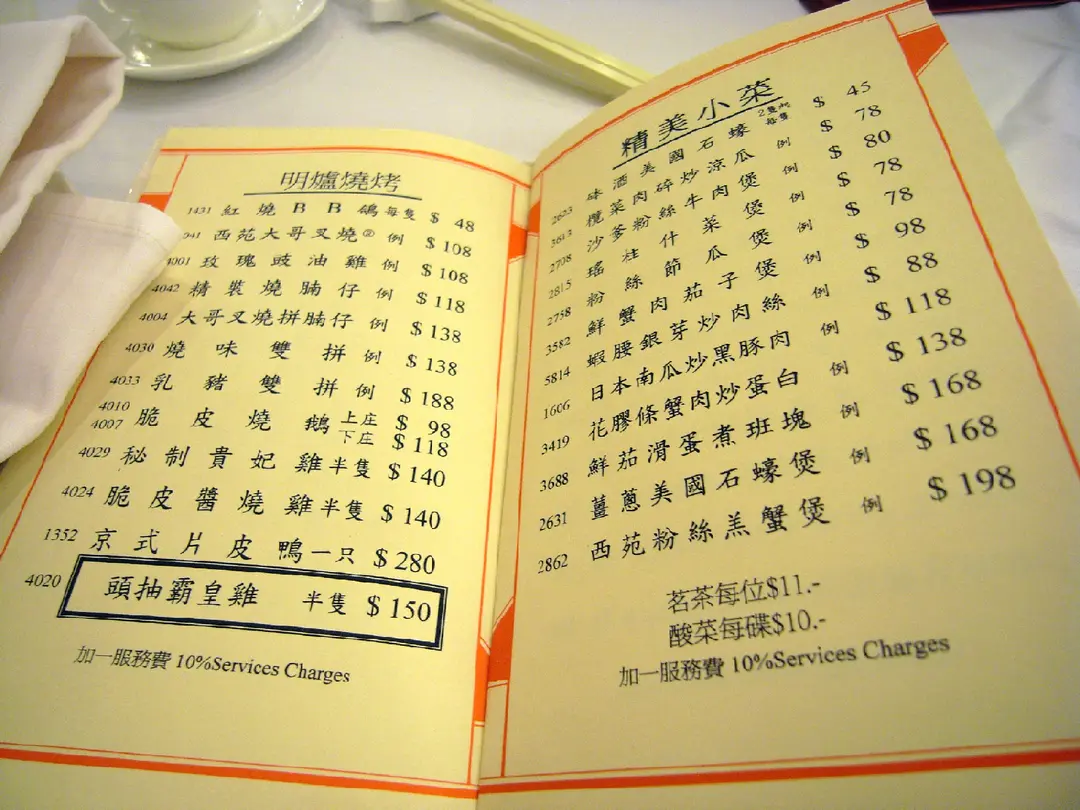 明爐燒烤
1431 紅燒BB鴿 每隻 $ 48
041 西苑大哥叉燒® 例 $ 108
4001 玫瑰豉油雞 例 $ 108
4042 精裝燒腩仔 例 $ 118
4004 大哥叉燒拼腩仔 例 $ 138
4030 燒味雙拼 例 $ 138
4033 乳豬雙拼 例 $ 188
4010 脆皮燒鵝 上庄 $ 98
4007 下庄 $ 118
4029 秘制貴妃雞 半隻 $ 140
4024 脆皮醬燒雞 半隻 $ 140
1352 京式片皮鴨 一只 $ 280
4020 頭抽霸皇雞 半隻 $ 150
加一服務費 10%Services Charges
精美小菜
2623 味酒美國石蠔 2隻起 每隻 $ 45
3613 欖菜肉碎炒涼瓜 例 $ 78
2708 沙爹粉絲牛肉煲 例 $ 80
2815 瑤柱什菜煲 例 $ 78
2758 粉絲節瓜煲 例 $ 78
3582 鮮蟹肉茄子煲 例 $ 98
5814 蝦腰銀芽炒肉絲 例 $ 88
1606 日本南瓜炒黑豚肉 例 $ 118
3419 花膠條蟹肉炒蛋白 例 $ 138
3688 鮮茄滑蛋煮班塊 例 $ 168
2631 薑蔥美國石蠔煲 例 $ 168
2862 西苑粉絲羔蟹煲 例 $ 198
茗茶每位$11.-
酸菜每碟$10.-
加一服務費 10%Services Charges